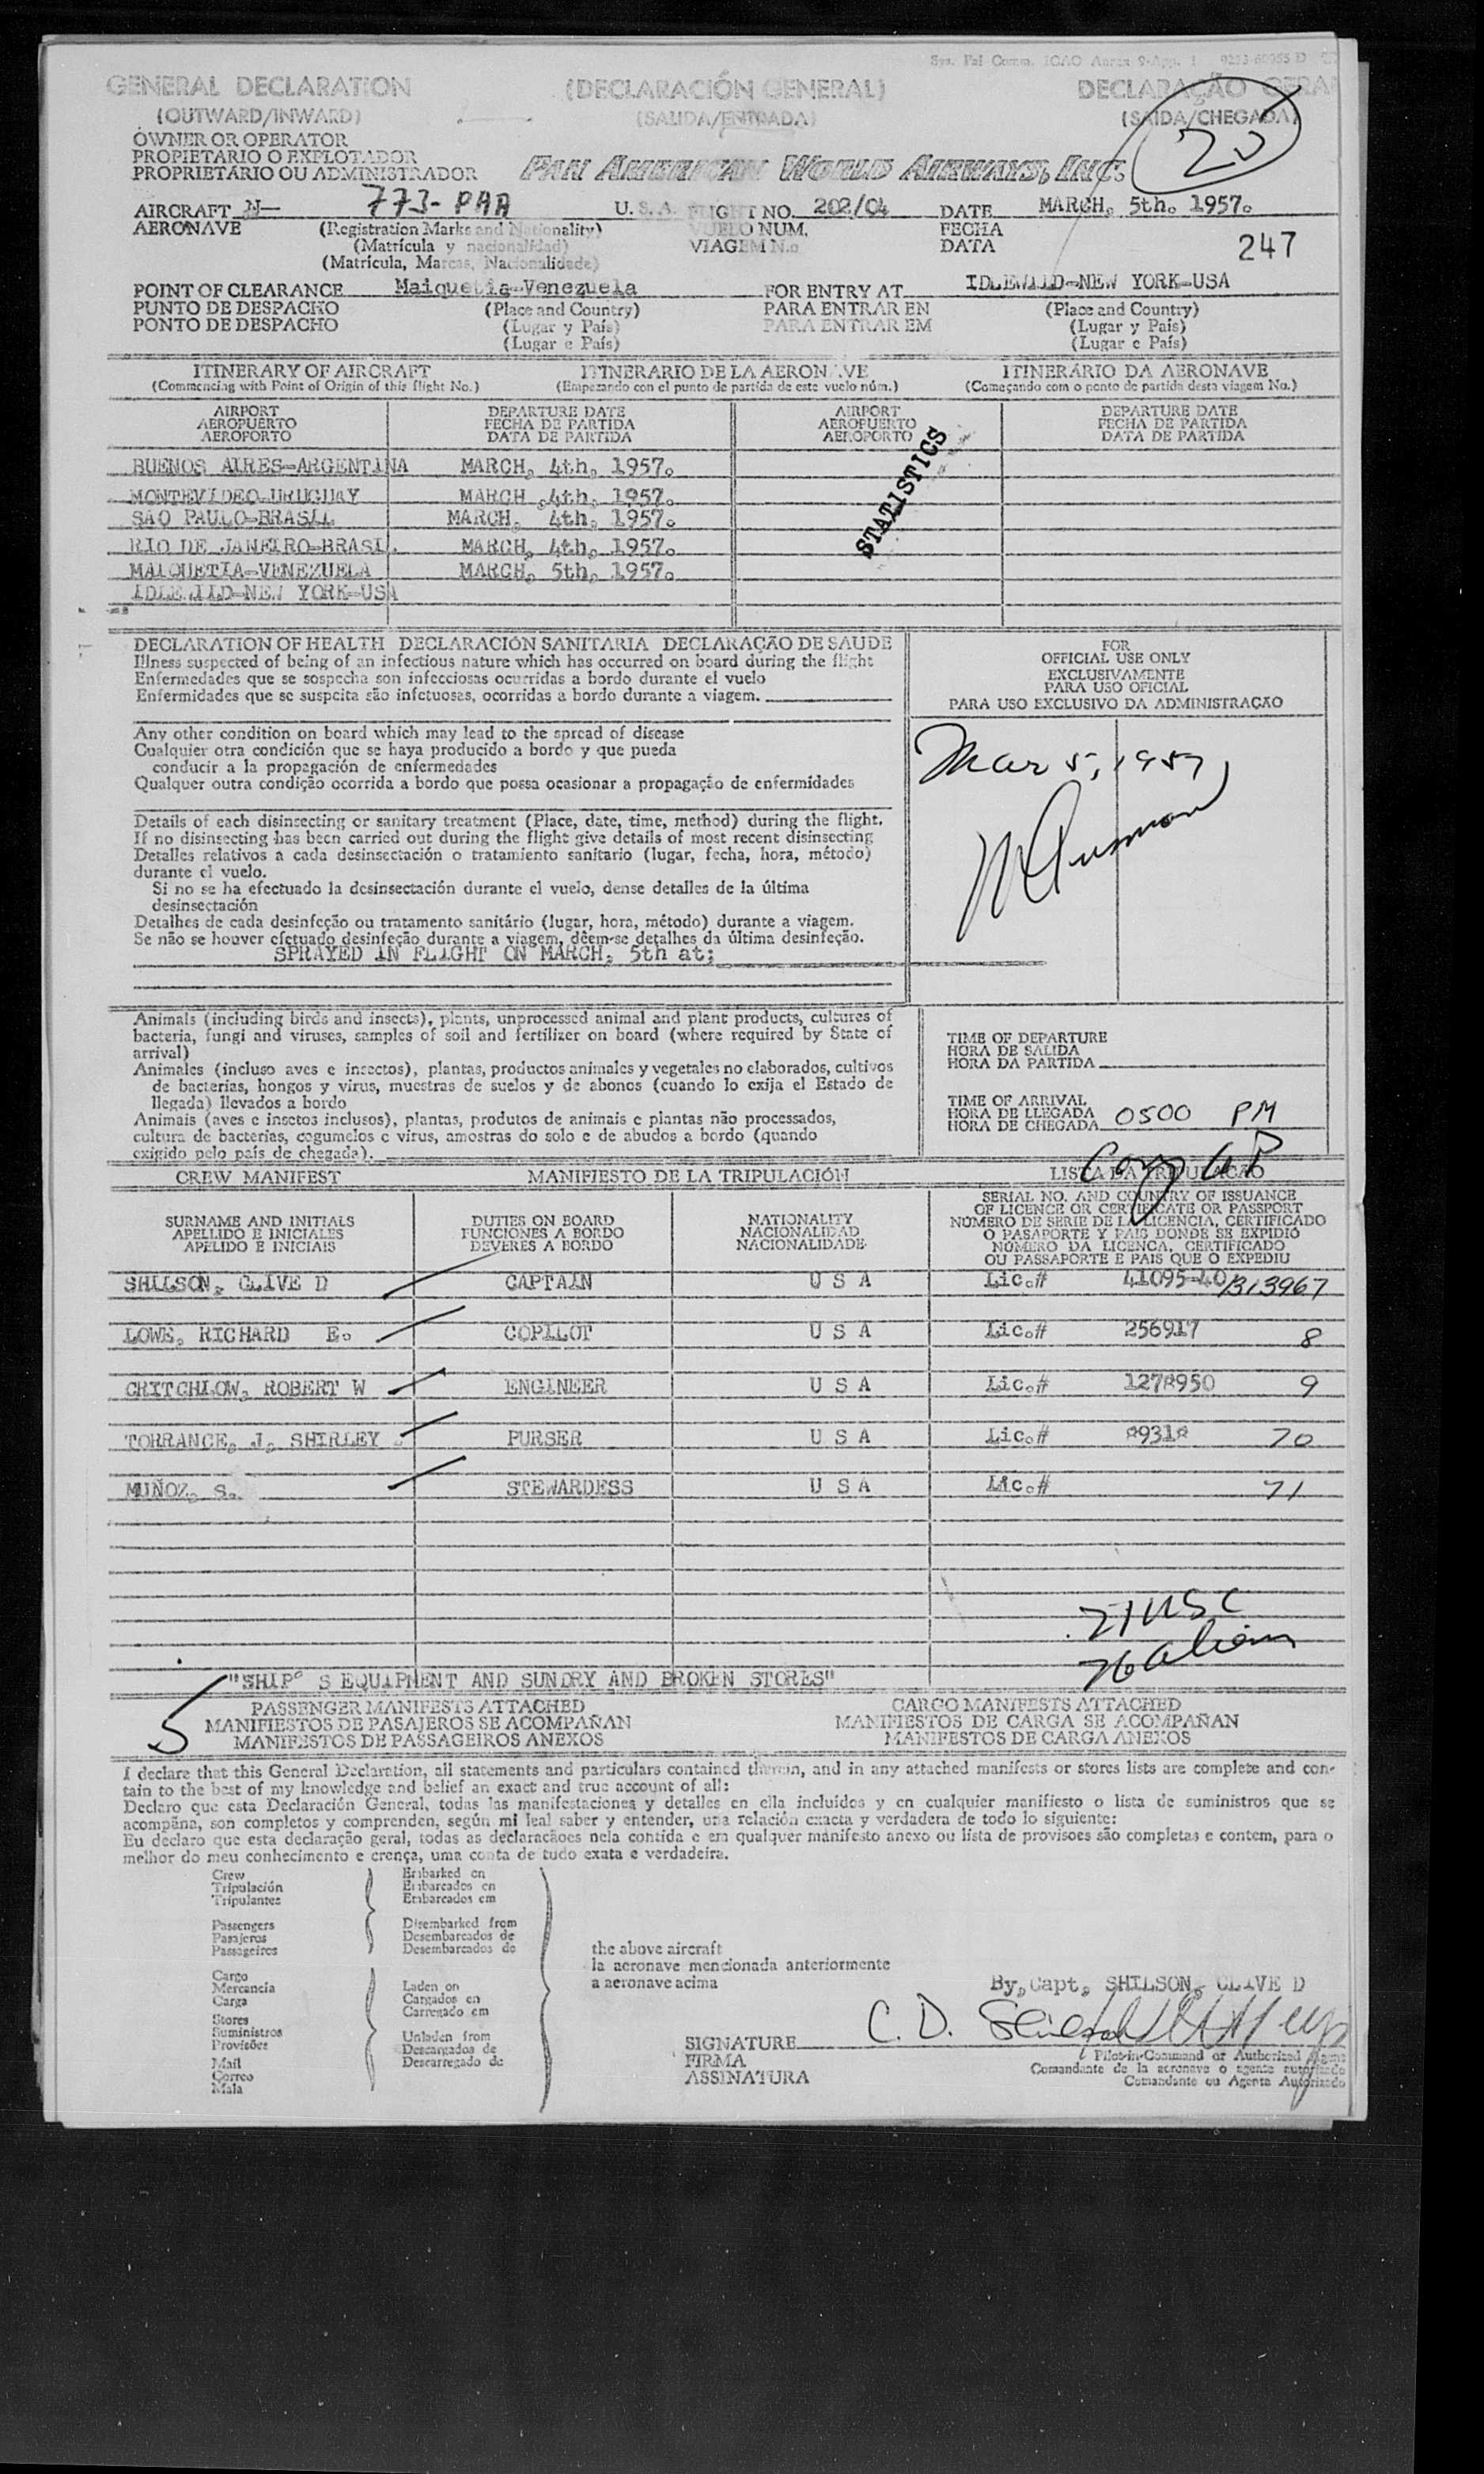 Sys. Pal Comm. ICAO Annex 9-App. 1
GENERAL DECLARATION (DECLARACIÓN GENERAL) DECLARAÇÃO GERAL
(OUTWARD/INWARD) (SALIDA/ENTRADA) (SAIDA/CHEGADA)
20
OWNER OR OPERATOR
PROPIETARIO O EXPLOTADOR
PROPRIETÁRIO OU ADMINISTRADOR PAN AMERICAN WORLD AIRWAYS, INC.
AIRCRAFT N- 773-PAA U. S. A. FLIGHT NO. 202/04 DATE MARCH, 5th. 1957.
AERONAVE (Registration Marks and Nationality) VUELO NUM. FECHA
(Matrícula y nacionalidad) VIAGEM N.o DATA 247
(Matrícula, Marcas, Nacionalidade)
POINT OF CLEARANCE Maiquetia-Venezuela FOR ENTRY AT IDLEWILD-NEW YORK-USA
PUNTO DE DESPACHO (Place and Country) PARA ENTRAR EN (Place and Country)
PONTO DE DESPACHO (Lugar y País) PARA ENTRAR EM (Lugar y País)
(Lugar e País) (Lugar e País)
ITINERARY OF AIRCRAFT ITINERARIO DE LA AERONAVE ITINERÁRIO DA AERONAVE
(Commencing with Point of Origin of this flight No.) (Empezando con el punto de partida de este vuelo núm.) (Começando com o ponto de partida desta viagem No.)
AIRPORT DEPARTURE DATE AIRPORT DEPARTURE DATE
AEROPUERTO FECHA DE PARTIDA AEROPUERTO FECHA DE PARTIDA
AEROPORTO DATA DE PARTIDA AEROPORTO DATA DE PARTIDA
STATISTICS
BUENOS AIRES-ARGENTINA MARCH, 4th, 1957.
MONTEVIDEO-URUGUAY MARCH ,4th, 1957.
SAO PAULO-BRASIL MARCH, 4th, 1957.
RIO DE JANEIRO-BRASIL. MARCH, 4th, 1957.
MAIQUETIA-VENEZUELA MARCH, 5th, 1957.
IDLEWILD-NEW YORK-USA
DECLARATION OF HEALTH DECLARACIÓN SANITARIA DECLARAÇÃO DE SAUDE
Illness suspected of being of an infectious nature which has occurred on board during the flight
Enfermedades que se sospecha son infecciosas ocurridas a bordo durante el vuelo
Enfermidades que se suspcita são infetuosas, ocorridas a bordo durante a viagem.
FOR
OFFICIAL USE ONLY
EXCLUSIVAMENTE
PARA USO OFICIAL
PARA USO EXCLUSIVO DA ADMINISTRAÇÃO
Mar 5, 1957
Any other condition on board which may lead to the spread of disease
Cualquier otra condición que se haya producido a bordo y que pueda
conducir a la propagación de enfermedades
Qualquer outra condição ocorrida a bordo que possa ocasionar a propagação de enfermidades
Details of each disinsecting or sanitary treatment (Place, date, time, method) during the flight.
If no disinsecting has been carried out during the flight give details of most recent disinsecting
Detalles relativos a cada desinsectación o tratamiento sanitario (lugar, fecha, hora, método)
durante el vuelo.
Si no se ha efectuado la desinsectación durante el vuelo, dense detalles de la última
desinsectación
Detalhes de cada desinfeção ou tratamento sanitário (lugar, hora, método) durante a viagem.
Se não se houver efetuado desinfeção durante a viagem, dêem-se detalhes da última desinfeção.
SPRAYED IN FLIGHT ON MARCH, 5th at;
Animals (including birds and insects), plants, unprocessed animal and plant products, cultures of
bacteria, fungi and viruses, samples of soil and fertilizer on board (where required by State of
arrival)
Animales (incluso aves e insectos), plantas, productos animales y vegetales no elaborados, cultivos
de bacterias, hongos y virus, muestras de suelos y de abonos (cuando lo exija el Estado de
llegada) llevados a bordo
Animais (aves e insetos inclusos), plantas, produtos de animais e plantas não processados,
cultura de bacterias, cogumelos e virus, amostras do solo e de abudos a bordo (quando
exigido pelo país de chegada).
TIME OF DEPARTURE
HORA DE SALIDA
HORA DA PARTIDA
TIME OF ARRIVAL
HORA DE LLEGADA
HORA DE CHEGADA 0500 PM
CREW MANIFEST MANIFIESTO DE LA TRIPULACIÓN LISTA DA TRIPULAÇÃO
SURNAME AND INITIALS DUTIES ON BOARD NATIONALITY
APELLIDO E INICIALES FUNCIONES A BORDO NACIONALIDAD
APELIDO E INICIAIS DEVERES A BORDO NACIONALIDADE
SERIAL NO. AND COUNTRY OF ISSUANCE
OF LICENCE OR CERTIFICATE OR PASSPORT
NÚMERO DE SERIE DE LA LICENCIA, CERTIFICADO
O PASAPORTE Y PAIS DONDE SE EXPIDIÓ
NÚMERO DA LICENCA, CERTIFICADO
OU PASSAPORTE E PAIS QUE O EXPEDIU
SHILSON, CLIVE D CAPTAIN U S A Lic.# 41095-40 313967
LOWE, RICHARD E. COPILOT U S A Lic.# 256917 8
CRITCHLOW, ROBERT W ENGINEER U S A Lic.# 1278950 9
TORRANCE, J, SHIRLEY PURSER U S A Lic.# 89318 70
MUÑOZ, S. STEWARDESS U S A Lic.# 71
21 USC
"SHIP' S EQUIPMENT AND SUNDRY AND BROKEN STORES"
5
PASSENGER MANIFESTS ATTACHED CARGO MANIFESTS ATTACHED
MANIFIESTOS DE PASAJEROS SE ACOMPAÑAN MANIFIESTOS DE CARGA SE ACOMPAÑAN
MANIFESTOS DE PASSAGEIROS ANEXOS MANIFESTOS DE CARGA ANEXOS
I declare that this General Declaration, all statements and particulars contained therein, and in any attached manifests or stores lists are complete and con-
tain to the best of my knowledge and belief an exact and true account of all:
Declaro que esta Declaración General, todas las manifestaciones y detalles en ella incluidos y en cualquier manifiesto o lista de suministros que se
acompaña, son completos y comprenden, según mi leal saber y entender, una relación exacta y verdadera de todo lo siguiente:
Eu declaro que esta declaração geral, todas as declarações nela contida e em qualquer manifesto anexo ou lista de provisoes são completas e contem, para o
melhor do meu conhecimento e crença, uma conta de tudo exata e verdadeira.
Crew Embarked on
Tripulación Embarcados en
Tripulantes Embarcados em
Passengers Disembarked from
Pasajeros Desembarcados de
Passageiros Desembarcados de
the above aircraft
la aeronave mencionada anteriormente
a aeronave acima
Cargo
Mercancia Laden on
Carga Cargados en
Stores Carregado em
Suministros
Provisões Unladen from
Mail Descargados de
Correo Descarregado de
Mala
By, Capt, SHILSON, CLIVE D
SIGNATURE C. D. Shilson
FIRMA
ASSINATURA
Pilot-in-Command or Authorized Agent
Comandante de la aeronave o agente autorizado
Comandante ou Agente Autorizado